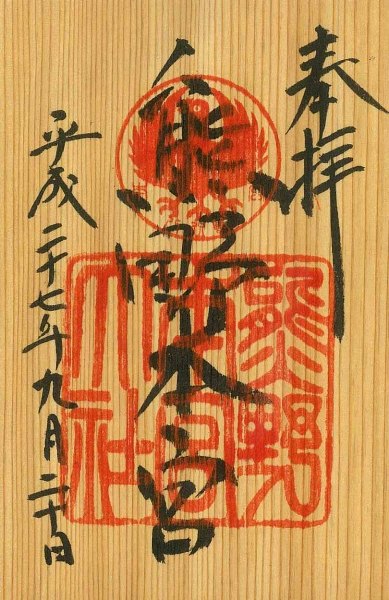 奉拝
熊野本宮
平成二十七年九月二十日
熊野
本宮
大社